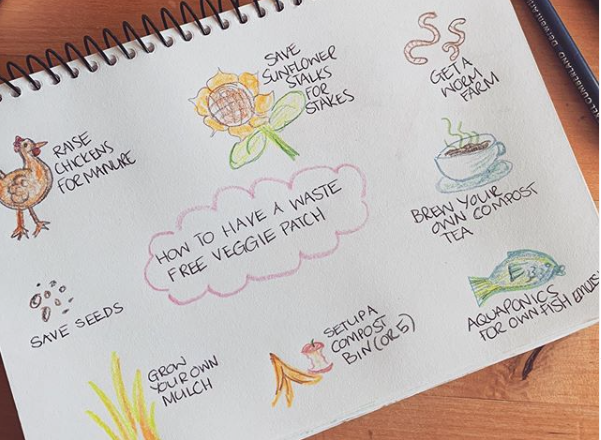 SAVE
SUNFLOWER
STALKS
FOR
STAKES
GET A
WORM
FARM
RAISE
CHICKENS
FOR MANURE
HOW TO HAVE A WASTE
FREE VEGGIE PATCH
BREW YOUR
OWN COMPOST
TEA
SAVE SEEDS
AQUAPONICS
FOR OWN FISH
SET UP A
COMPOST
BIN (OR 5)
GROW
YOUR OWN
MULCH